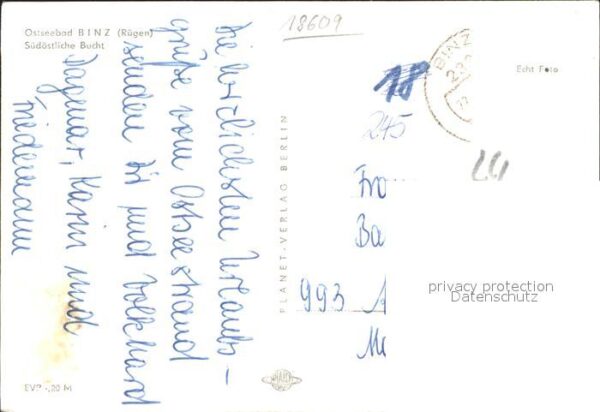 Ostseebad BINZ (Rügen)
Südöstliche Bucht
18609
BINZ
Echt Foto
18
245
Die herzlichsten Urlaubs-
grüße vom Ostseestrand
senden Dir und Volkhard
Dagmar, Karin und
Friedemann
PLANET-VERLAG BERLIN
Fro
Ba
993
privacy protection
Datenschutz
EVP -,20 M